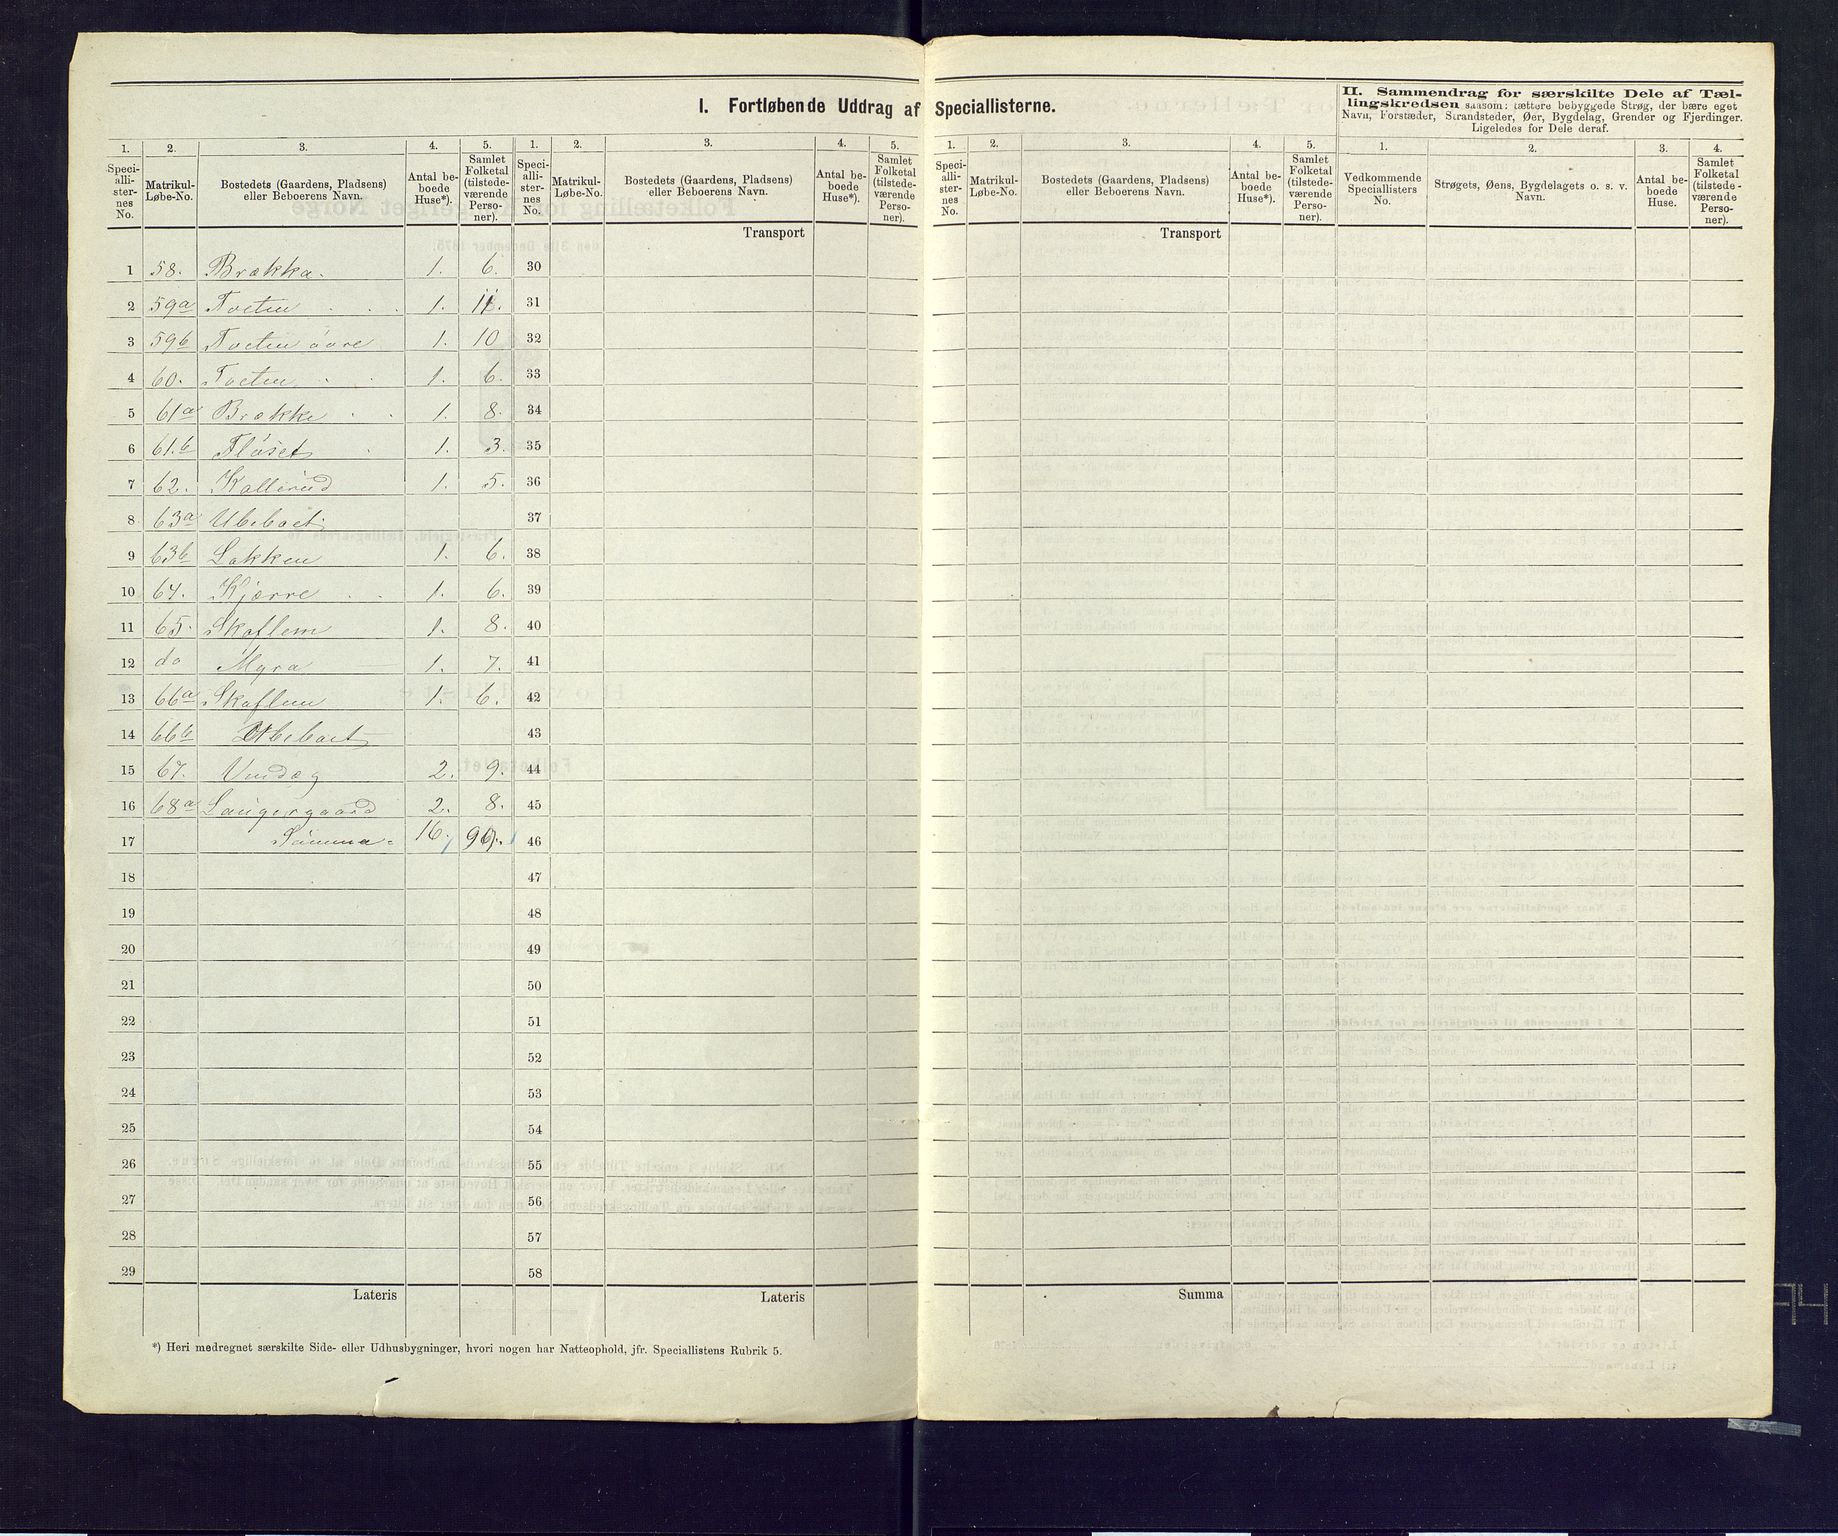 I. Fortløbende Uddrag af Speciallisterne.
II. Sammendrag for særskilte Dele af Tæl-
lingskredsen saasom: tættere bebyggede Strøg, der bære eget
Navn, Forstæder, Strandsteder, Øer, Bygdelag, Grender og Fjerdinger.
Ligeledes for Dele deraf.
1. 2. 3. 4. 5. 1. 2. 3. 4. 5. 1. 2. 3. 4. 5. 1. 2. 3. 4.
Speci-alli-ster-nes No. Matrikul-Løbe-No. Bostedets (Gaardens, Pladsens) eller Beboerens Navn. Antal be-boede Huse*). Samlet Folketal (tilstede-værende Perso-ner).
Speci-alli-ster-nes No. Matrikul-Løbe-No. Bostedets (Gaardens, Pladsens) eller Beboerens Navn. Antal be-boede Huse*). Samlet Folketal (tilstede-værende Perso-ner).
Speci-alli-ster-nes No. Matrikul-Løbe-No. Bostedets (Gaardens, Pladsens) eller Beboerens Navn. Antal be-boede Huse*). Samlet Folketal (tilstede-værende Perso-ner).
Vedkommende Speciallisters No. Strøgets, Øens, Bygdelagets o. s. v. Navn. Antal be-boede Huse. Samlet Folketal (tilstede-værende Perso-ner).
Transport Transport
1 58. Brækka. 1. 6. 30
2 59a Tveten 1. 11. 31
3 59b Tveten øvre 1. 10 32
4 60. Tveten 1. 6. 33
5 61a Brække 1. 8. 34
6 61.b Fløset 1. 3. 35
7 62. Kallerud 1. 5. 36
8 63a Ubeboet. 37
9 63b Løkken 1. 6. 38
10 64. Kjærre 1. 6. 39
11 65. Skaflem 1. 8. 40
12 do Myra 1. 7. 41
13 66a Skaflem 1. 6. 42
14 66b Ubeboet 43
15 67. 2. 9. 44
16 68a Laugergaard 2. 8. 45
17 Summa 16. 46
18 47
19 48
20 49
21 50
22 51
23 52
24 53
25 54
26 55
27 56
28 57
29 58
Lateris Lateris Summa
*) Heri medregnet særskilte Side- eller Udhusbygninger, hvori nogen har Natteophold, jfr. Speciallistens Rubrik 5.